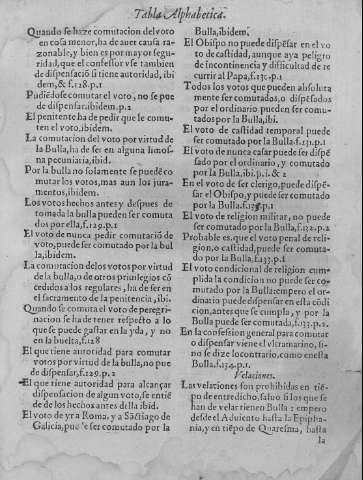 Tabla Alphabetica.
Quando se haze comutacion del voto
en cosa menor, ha de auer causa ra-
zonable, y bien es por mayor segu-
ridad, que el confessor vse tambien
de dispensació si tiene autoridad, ibi
dem, & f.128.p.1
Pudiédose comutar el voto, no se pue
de dispensar. ibidem.p.2
El penitente ha de pedir que le comu-
ten el voto, ibidem.
La comutacion del voto por virtud de
la Bulla, ha de ser en alguna limos-
na pecuniaria, ibid.
Por la bulla no solamente se puedē co
mutar los votos, mas aun los jura-
mentos, ibidem.
Los votos hechos antes y despues de
tomada la bulla pueden ser comuta
dos por ella, f.129.p.1
El voto de nunca pedir comutació de
voto, puede ser comutado por la bul
la, ibidem.
La comutacion de los votos por virtud
de la bulla, o de otros priuilegios có
cedidos a los regulares, ha de ser en
el sacramento de la penitencia, ibi.
Quando se comuta el voto de peregri-
nacion se ha de tener respecto a lo
que se puede gastar en la yda, y no
en la buelta, f.128
El que tiene autoridad para comutar
votos por virtud de la bulla, no pue
de dispensar, f.129.p.2
El que tiene autoridad para alcançar
dispensacion de algun voto, se entié
de de los hechos antes della ibid.
El voto de yr a Roma, y a Sāctiago de
Galicia, pue e ser comutado por la
Bulla, ibidem.
El Obispo no puede dispēsar en el vo
to de castidad, aunque aya peligro
de incontinencia y difficultad de re
currir al Papa, f.130.p.1
Todos los votos que pueden absoluta
mente ser comutados, o dispēsados
por el ordinario pueden ser comu-
tados por la Bulla, ibi.
El voto de castidad temporal puede
ser comutado por la Bulla f.131.p.1
El voto de nunca casar puede ser dispē
sado por el ordinario, y comutado
por la Bulla, ibi.p.1. & 2
En el voto de ser clerigo, puede dispē-
sar el Obispo, y puede ser comutado
por la Bulla, p.1
El voto de religion militar, no puede
ser comutado por la Bulla f.132.p.2
Probable es, que el voto penal de reli-
gion, o castidad, puede ser comuta-
do por la Bulla, f.133.p.1
El voto condicional de religion cum-
plida la condicion no puede ser co-
mutado por la Bulla: empero el or-
dinario puede dispensar en esta códi
cion, antes que se cumpla, y por la
Bulla puede ser comutada, f.133.p.2.
En la confession general para comutar
o dispensar viene el vltramarino, si-
no se dize lo contrario, como en esta
Bulla. f.134.p.1.
Velaciones.
Las velaciones son prohibidas en tiē-
po de entredicho, saluo si los que se
han de velar tienen Bulla: empero
desde el Aduiento hasta la Epipha-
nia, y en tiēpo de Quaresma, hasta
la